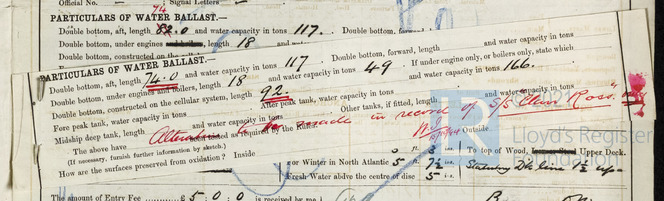 Official No. Signal Letters
PARTICULARS OF WATER BALLAST.—
74
Double bottom, aft, length 82.0 and water capacity in tons 117. Double bottom,
Double bottom, under engines length 18
Double bottom, constructed on the
PARTICULARS OF WATER BALLAST.—
Double bottom, aft, length 74.0 and water capacity in tons 117 Double bottom, forward, length and water capacity in tons
Double bottom, under engines and boilers, length 18 and water capacity in tons 49. If under engine only, or boilers only, state which
Double bottom, constructed on the cellular system, length 92. and water capacity in tons 166.
Fore peak tank, water capacity in tons After peak tank, water capacity in tons
Midship deep tank, length and water capacity in tons Other tanks, if fitted, length and water capacity in tons
The above have been tested as required by the Rules.
Alterations to be made in record of S/S "Clan Ross."
(If necessary, furnish further information by sketch.)
How are the surfaces preserved from oxidation? Inside Outside
To top of Wood, Upper Deck.
or Winter in North Atlantic 5 7½ Statutory Dk line 1½ up
Fresh Water above the centre of disc 5
The amount of Entry Fee £ 5 : 0 : 0 is received by me
Lloyd's Register
Foundation